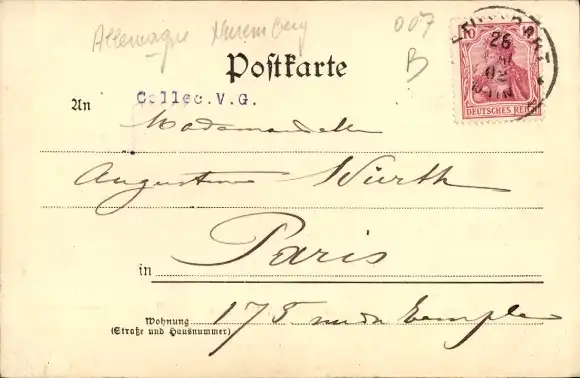 Allemagne Nuremberg
007
B
10
26
02
DEUTSCHES REICH
Postkarte
An
Collec.V.G.
Mademoiselle
Augustine Würth
in Paris
Wohnung
(Straße und Hausnummer)
175 rue du Temple